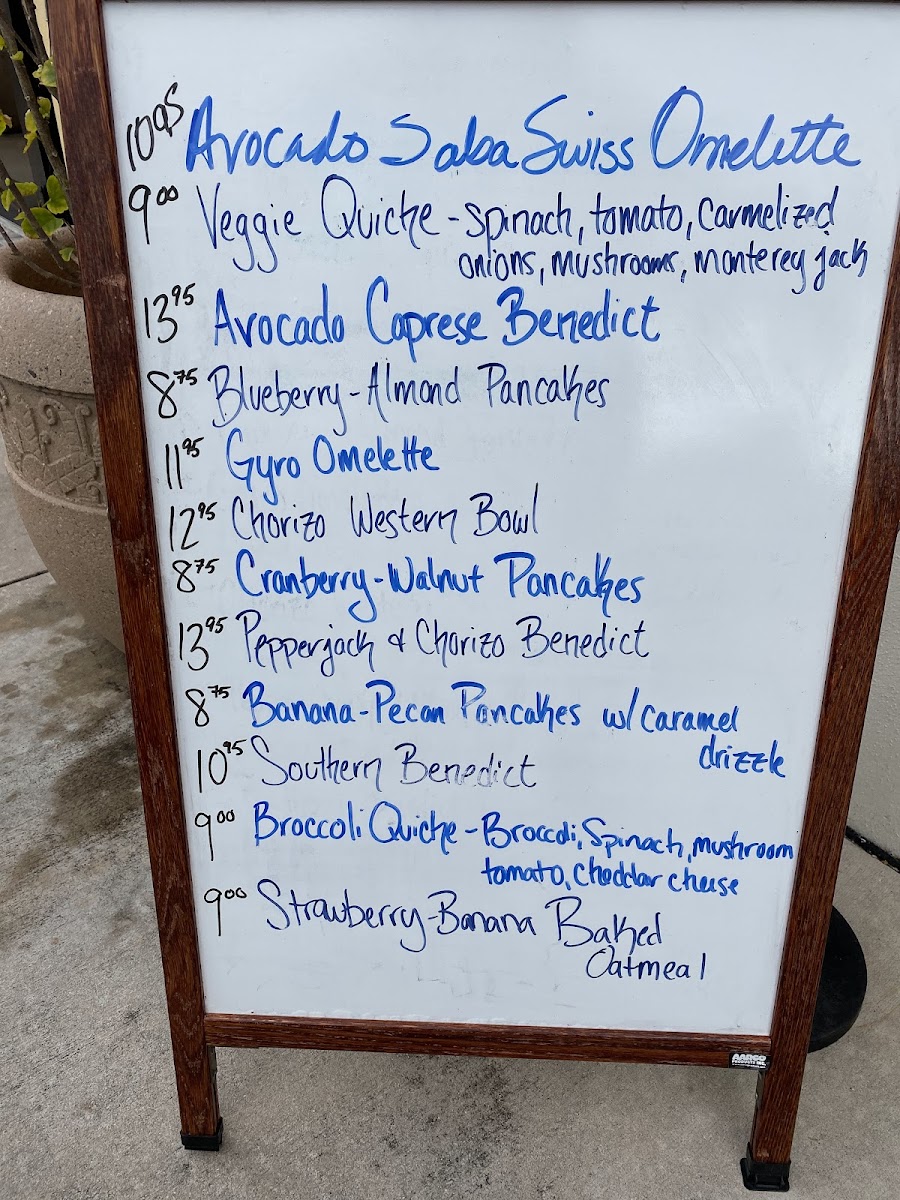 10 95 Avocado Salsa Swiss Omelette
9 00 Veggie Quiche - spinach, tomato, carmelized
onions, mushrooms, monterey jack
13 95 Avocado Caprese Benedict
8 75 Blueberry-Almond Pancakes
11 95 Gyro Omelette
12 95 Chorizo Western Bowl
8 75 Cranberry-Walnut Pancakes
13 95 Pepperjack & Chorizo Benedict
8 75 Banana-Pecan Pancakes w/ caramel
drizzle
10 95 Southern Benedict
9 00 Broccoli Quiche - Broccoli, Spinach, mushroom
tomato, cheddar cheese
9 00 Strawberry-Banana Baked
Oatmeal
AARCO
PRODUCTS INC.